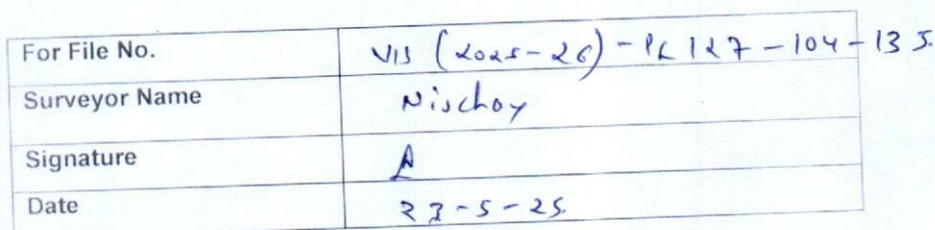 For File No. VIS (2025-26) - PL127 - 104 - 135
Surveyor Name Nischay
Signature
Date 23-5-25.